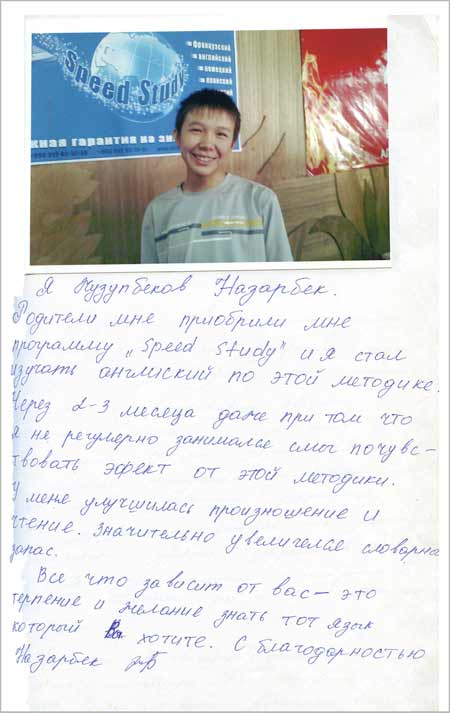 Французский
английский
немецкий
Speed Study
жная гарантия на зн
Я Кузупбеков Назарбек.
Родители мне приобрили мне
программу „Speed Study" и я стал
изучать англиский по этой методике.
Через 2-3 месяца даже при том что
я не регулерно занимался смог почувс-
твовать эфект от этой методики.
У меня улучшилась произношение и
чтение. Значительно увеличелсе словарна
запас.
Все что зависит от вас – это
терпение и желание знать тот язык
который Вы хотите. С благодарностью
Назарбек